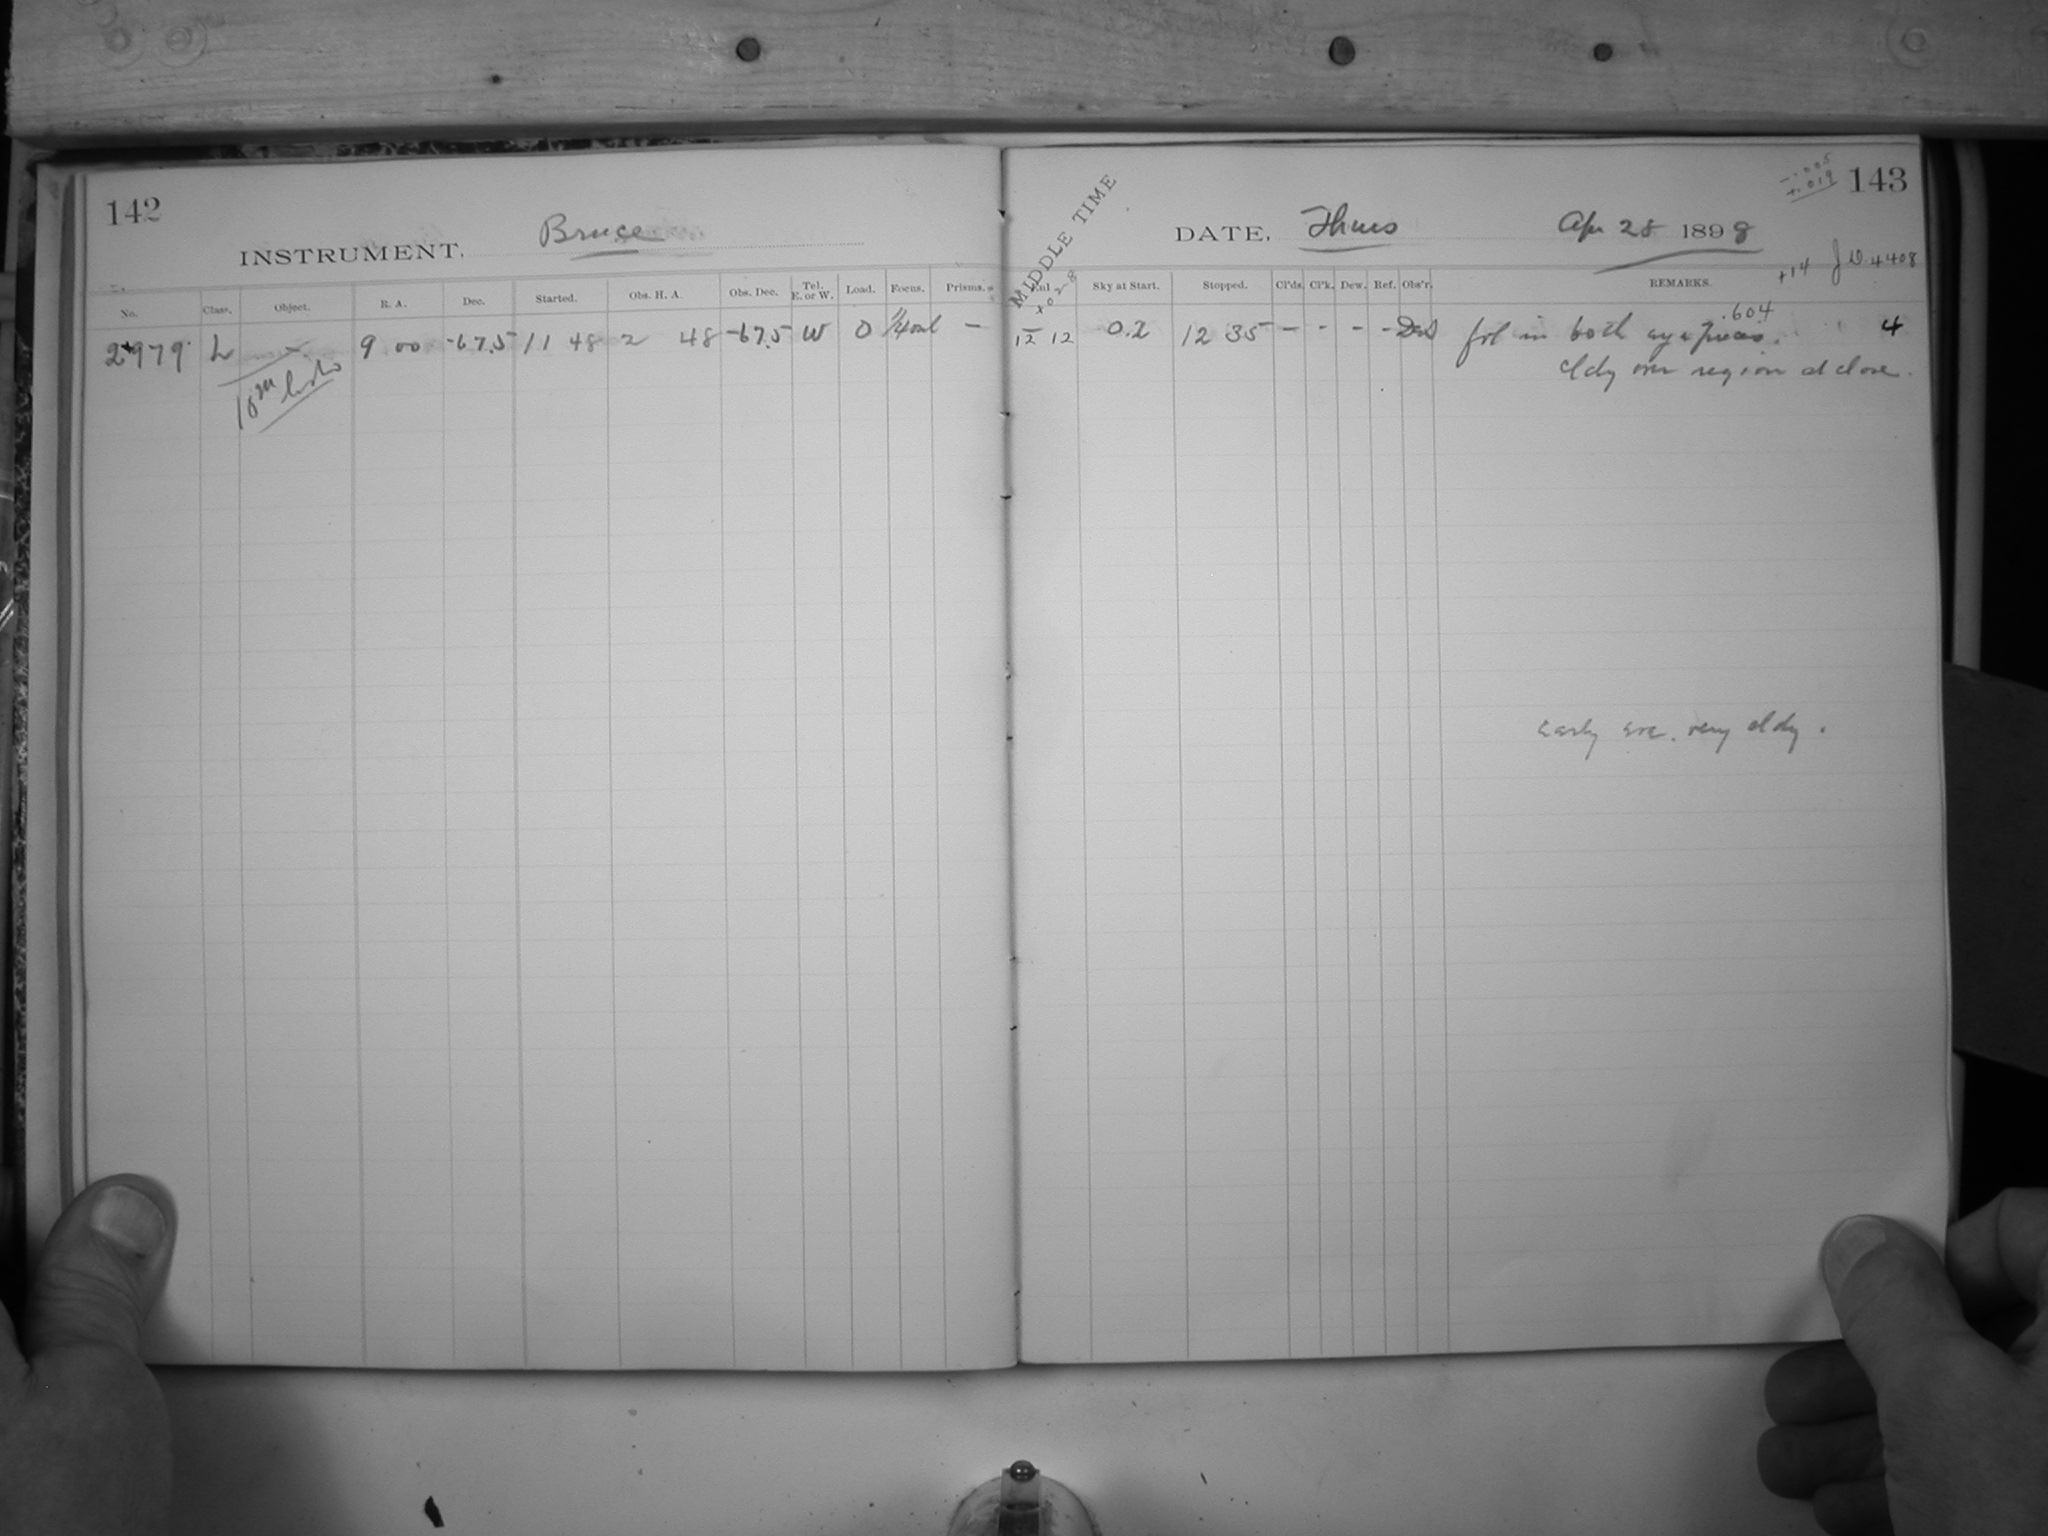 142
INSTRUMENT, Bruce
No. Class. Object. R. A. Dec. Started. Obs. H. A. Obs. Dec. Tel. E. or W. Load. Focus. Prisms.
2979 L — 9 00 -67.5 11 48 2 48 -67.5 W 0 —
10m
MIDDLE TIME
-.005
+.019
143
DATE, Thurs Apr 28 1898
+14 J.D. 4408
Sky at Start. Stopped. Cl'ds. Cl'k. Dew. Ref. Obs'r. REMARKS.
.604
12 12 0.2 12 35 — - - - fol in both eyepieces. 4
cldy over region at close.
early eve. very cldy.